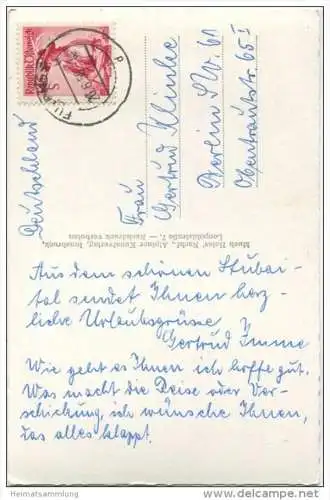 Deutschland
Frau
Gertrud Klinke
Berlin SW. 61
Obentrautstr. 65 I
Much Heiss' Nachf., Alpiner Kunstverlag, Innsbruck,
Leopoldstraße 7. — Nachdruck verboten
Aus dem schönen Stubai-
tal sendet Ihnen herz-
liche Urlaubsgrüsse
Gertrud Imme
Wie geht es Ihnen ich hoffe gut.
Was macht die Reise oder Ver-
schickung, ich wünsche Ihnen,
das alles klappt.
Heimatsammlung